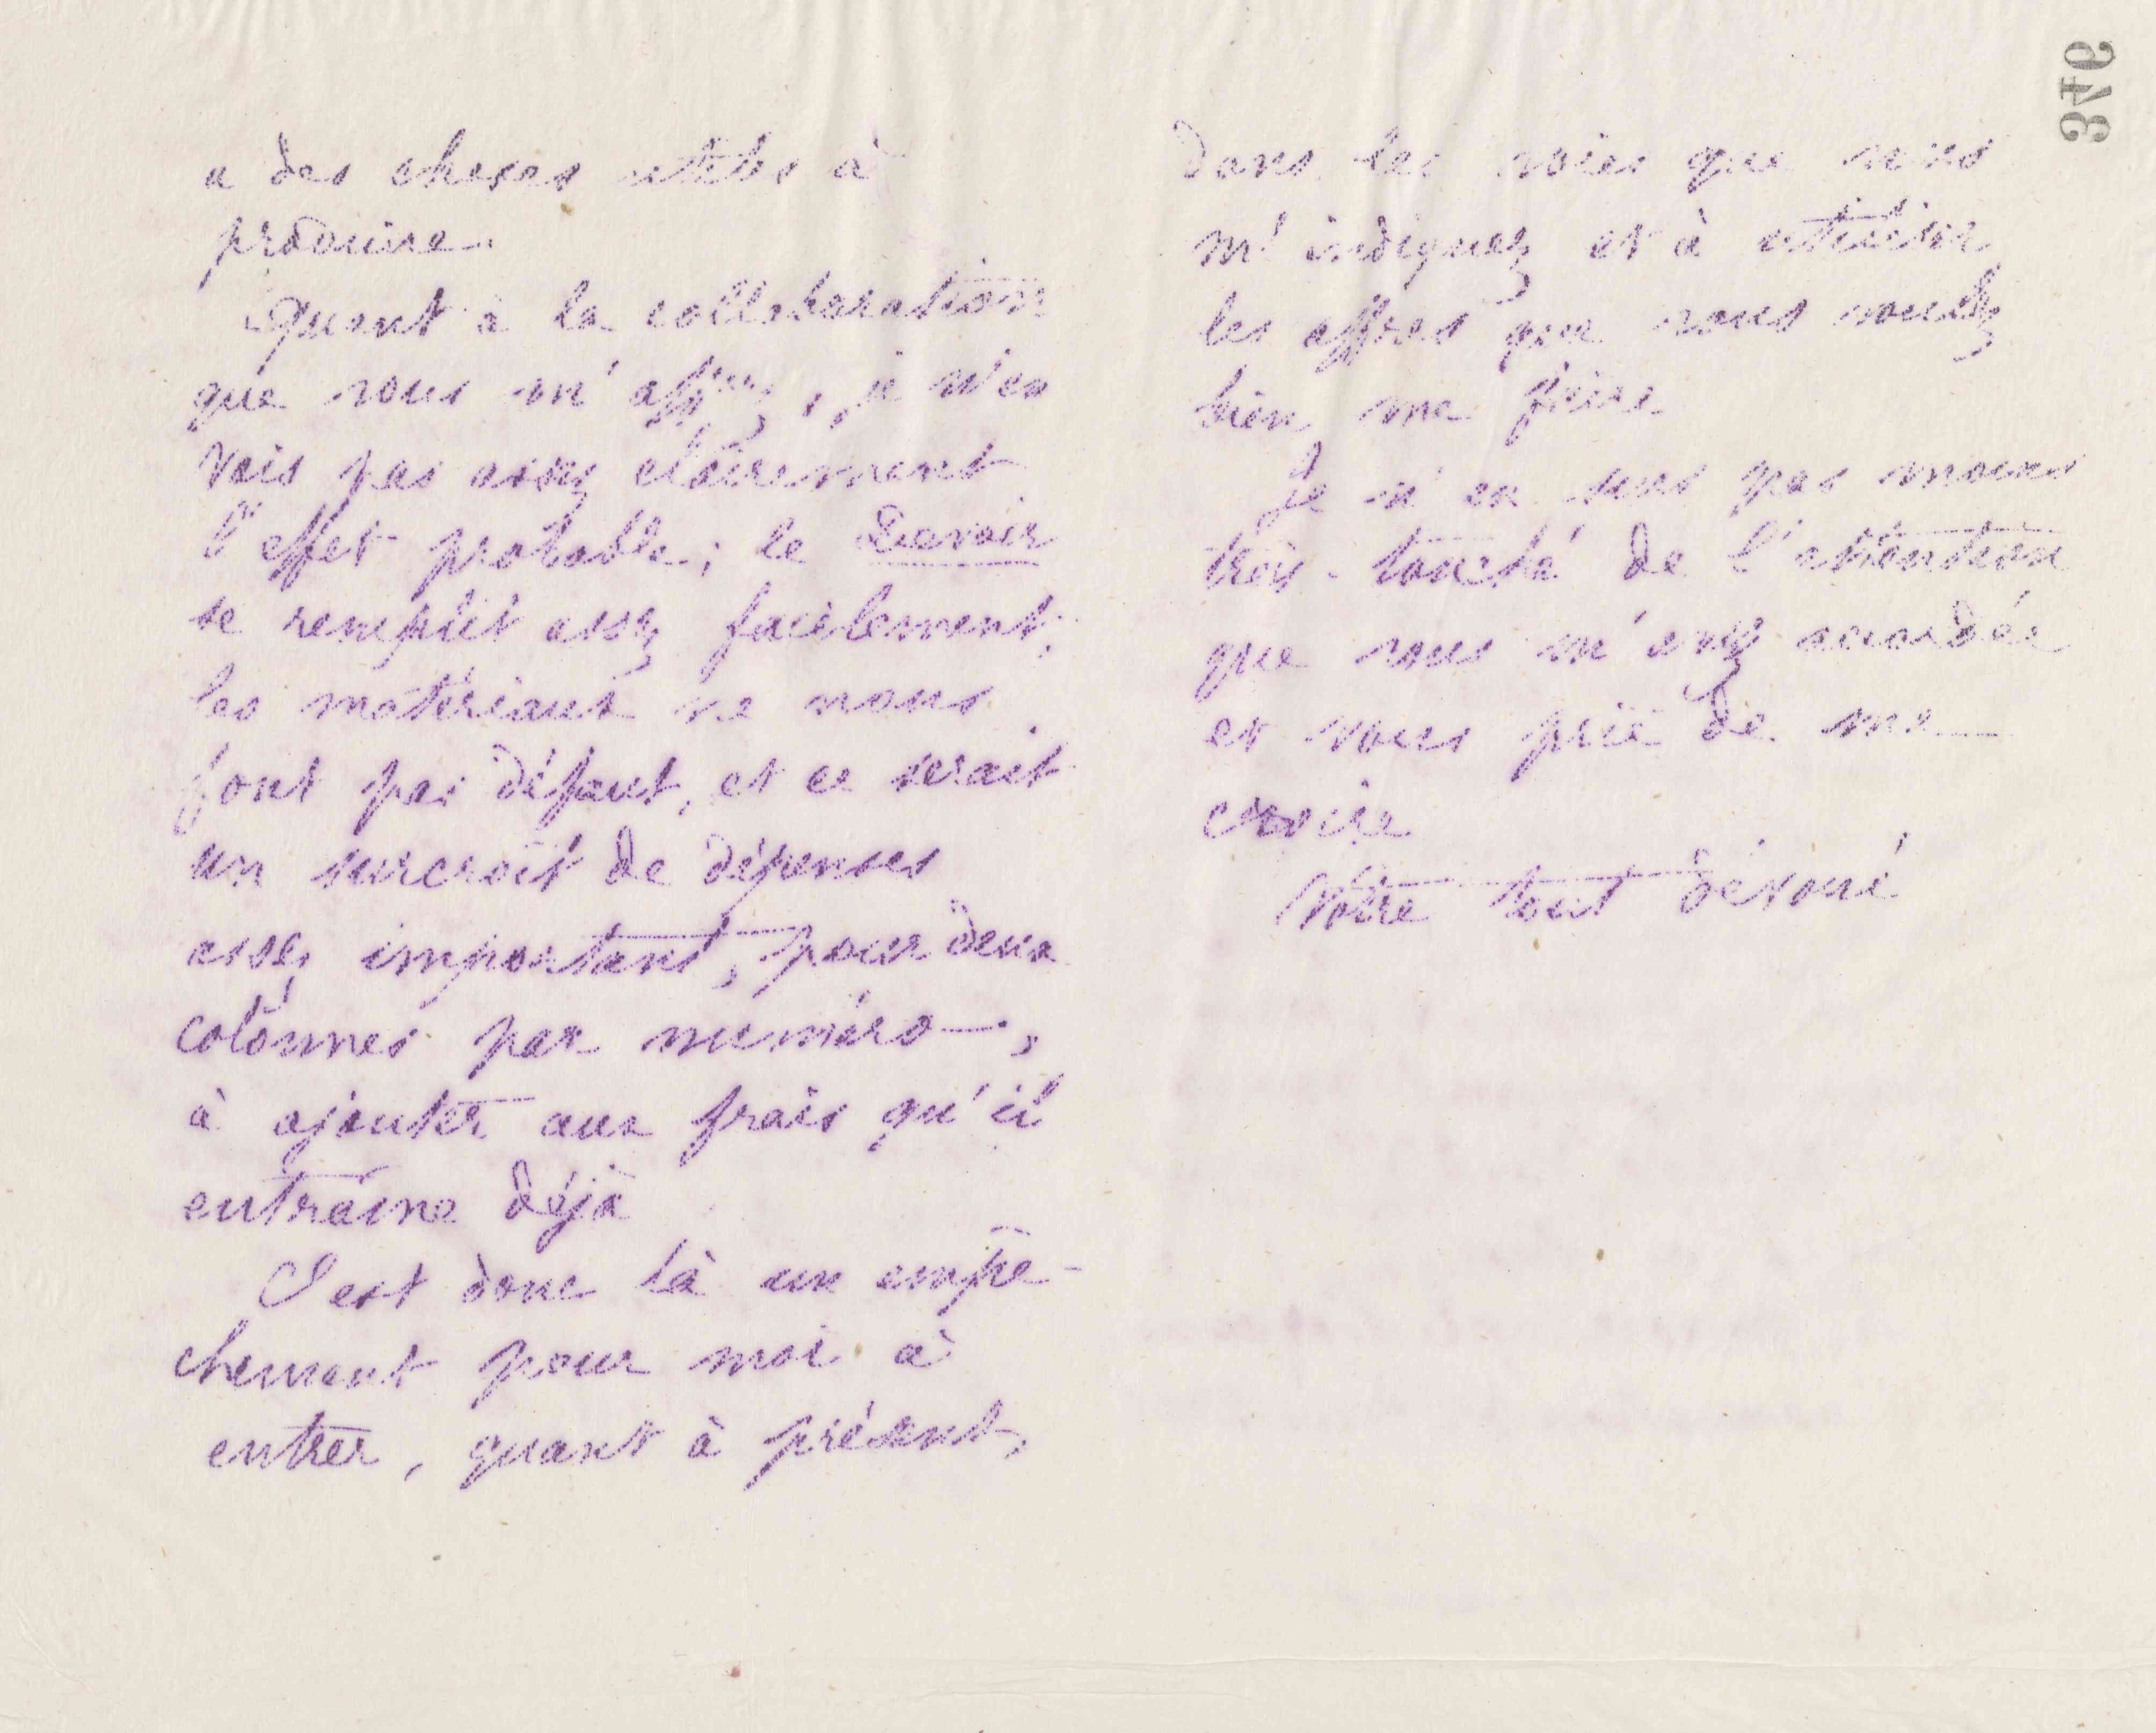 a des choses utiles à
produire.
Quant à la collaboration
que vous m'offrez, je n'en
vois pas assez clairement
l'effet probable; le Devoir
se remplit assez facilement,
les matériaux ne nous
font pas défaut, et ce serait
un surcroît de dépenses
assez important, pour deux
colonnes par numéro,
à ajouter aux frais qu'il
entraîne déjà
C'est donc là un empê-
chement pour moi à
entrer, quant à présent,
dans les voies que vous
m'indiquez et à utiliser
les offres que vous voulez
bien me faire
Je n'en suis pas moins
très-touché de l'attention
que vous m'avez accordée
et vous prie de me
croire
Votre tout dévoué
346